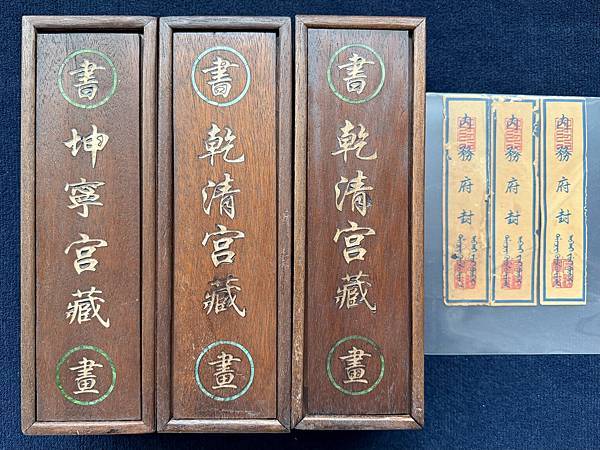 書
坤寧宮藏
畫
書
乾清宮藏
畫
書
乾清宮藏
畫
內務府封
內務府封
內務府封